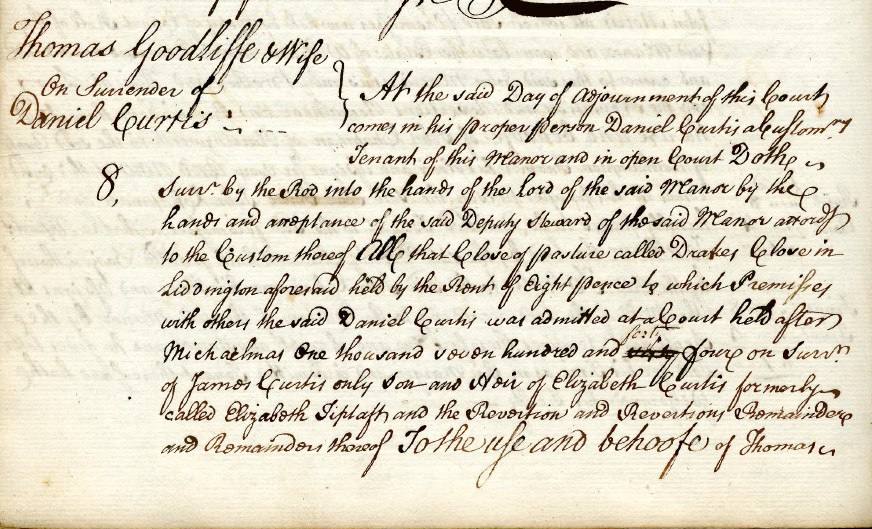 Thomas Goodliffe & Wife
On Surrender of
Daniel Curtis
At the said Day of Adjournment of this Court
comes in his proper person Daniel Curtis a Customry
Tenant of this Manor and in open Court Doth
8, Surr. by the Rod into the hands of the Lord of the said Manor by the
hands and acceptance of the said Deputy Steward of the said Manor accordg
to the Custom thereof All that Close of pasture called Drakes Close in
Liddington aforesaid held by the Rent of Eight pence to which Premisses
with others the said Daniel Curtis was admitted at a Court held after
Michaelmas One thousand seven hundred and forty four on Surr.
of James Curtis only Son and Heir of Elizabeth Curtis formerly
called Elizabeth Tiplaft and the Revertion and Revertions Remainder
and Remainders thereof To the use and behoofe of Thomas